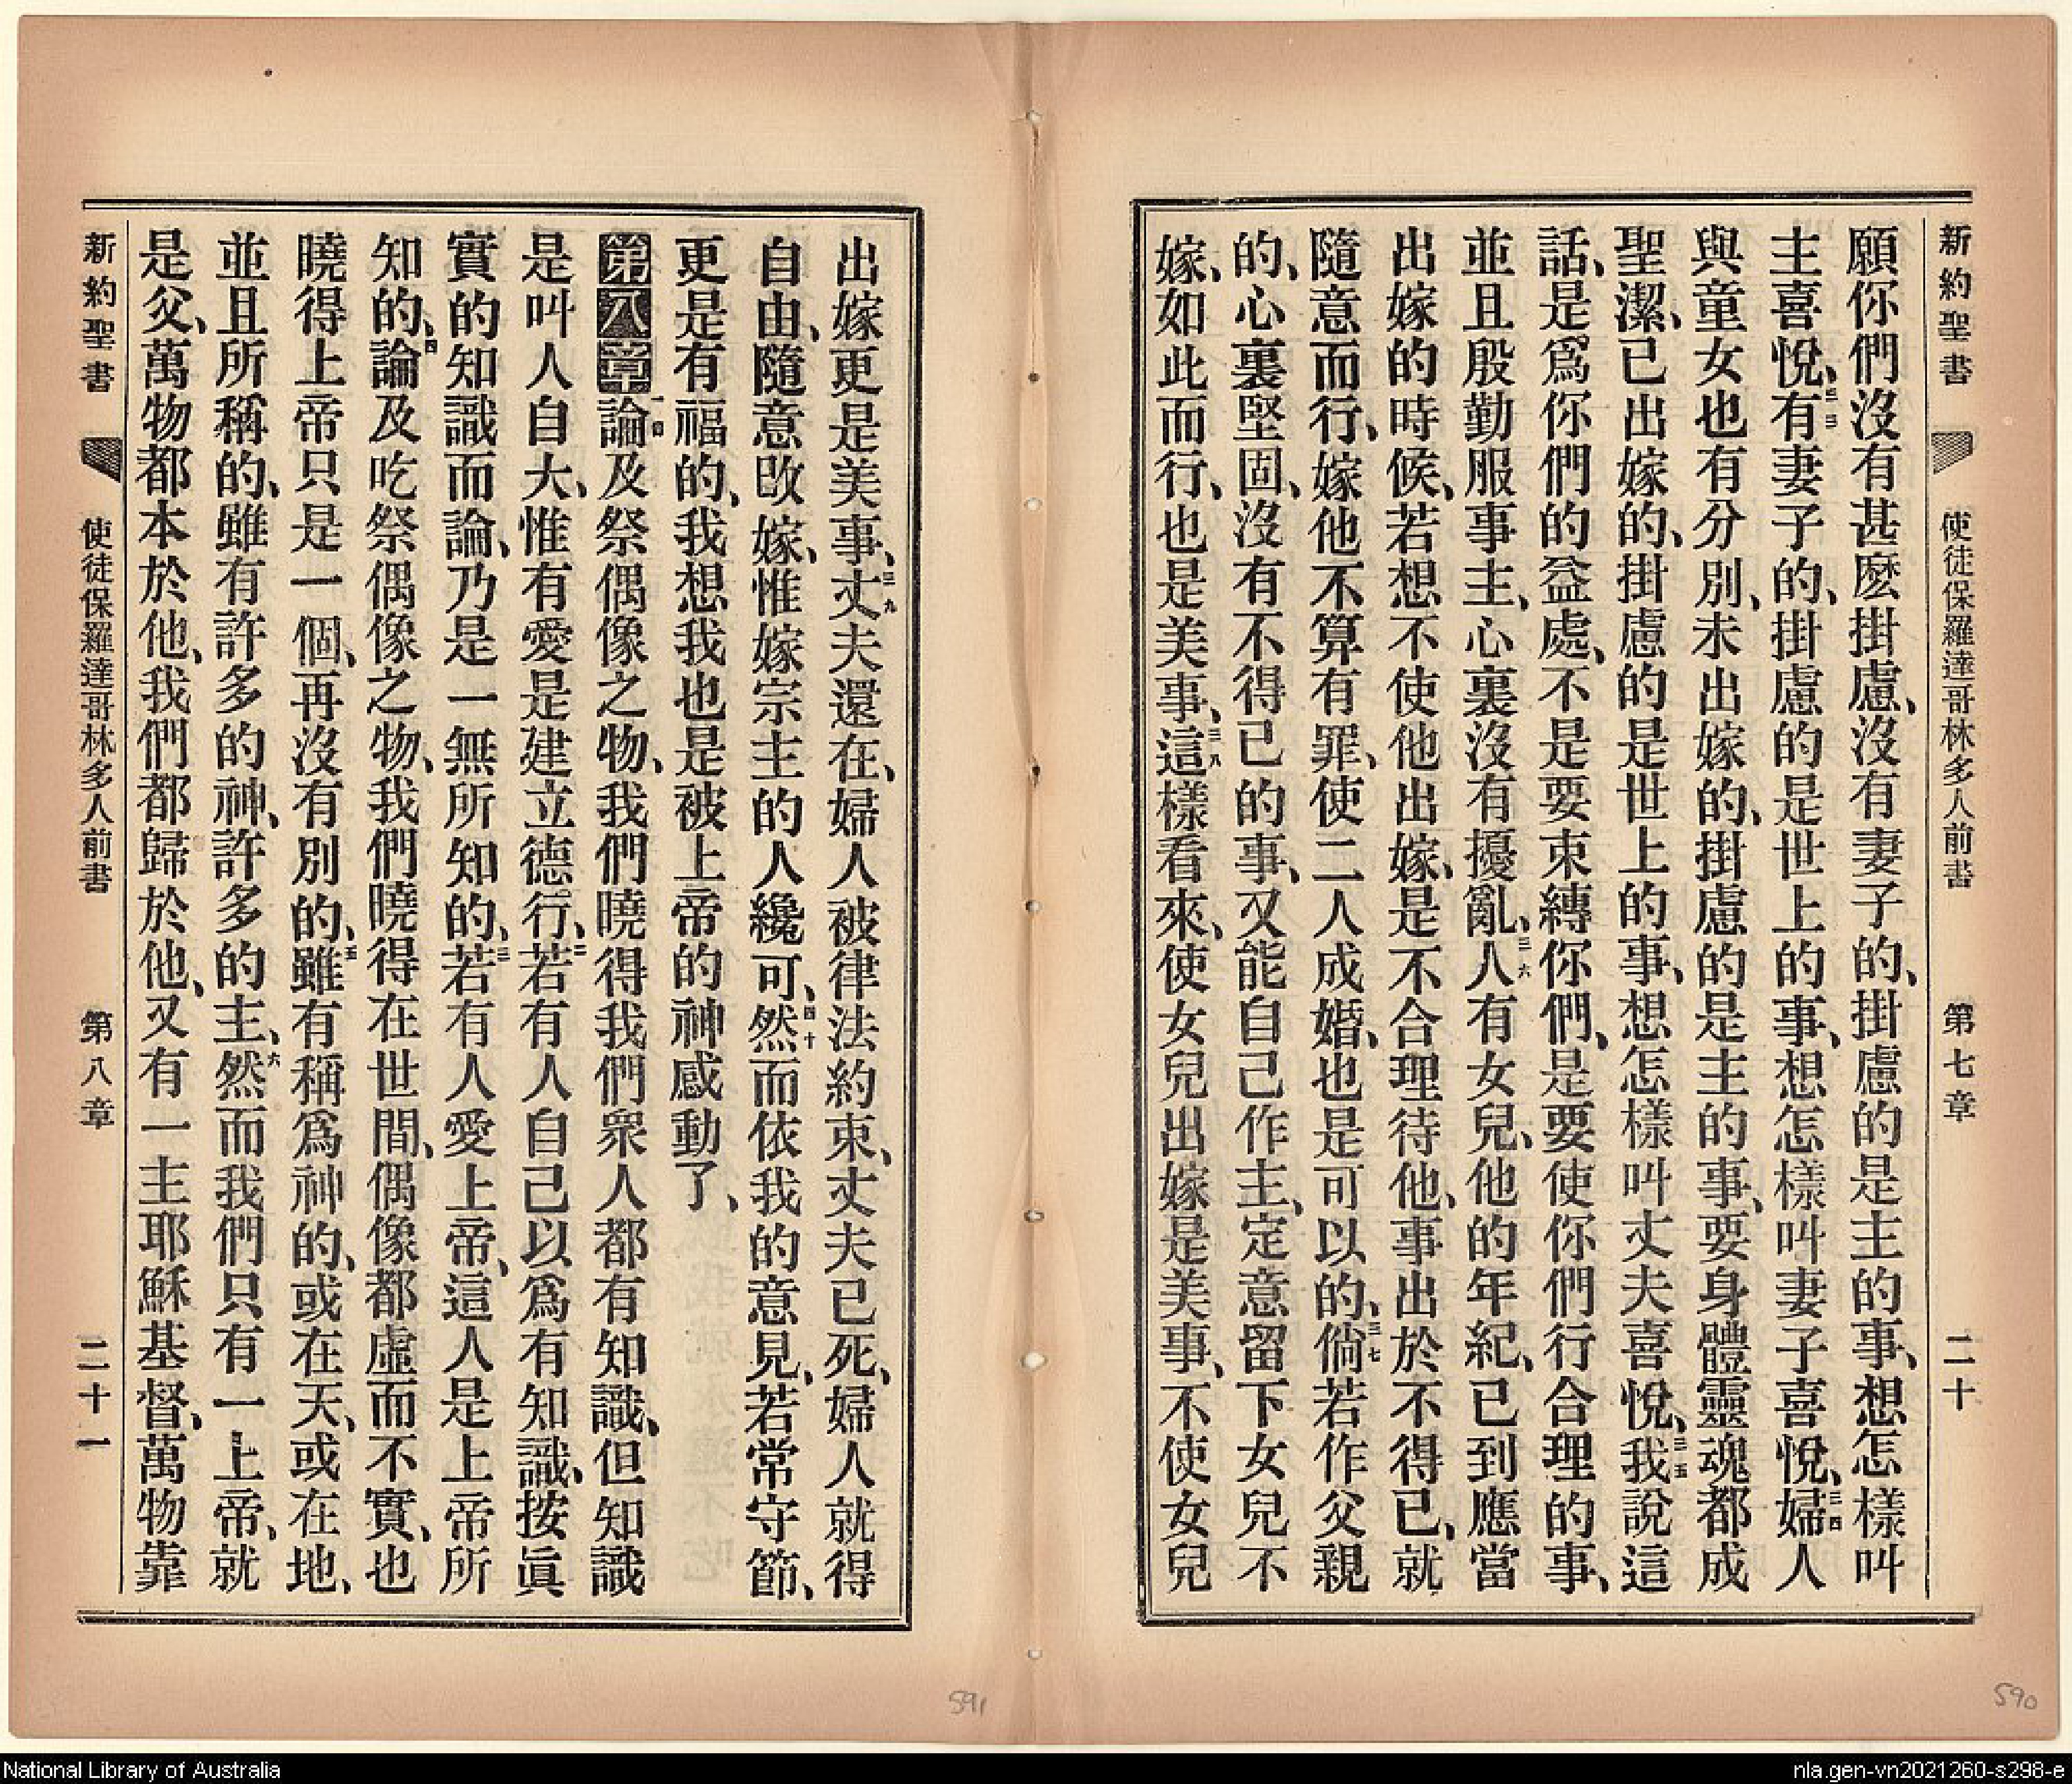 新約聖書 使徒保羅達哥林多人前書 第七章 二十
願你們沒有甚麽掛慮、沒有妻子的、掛慮的是主的事、想怎樣叫
主喜悅、三三有妻子的、掛慮的是世上的事、想怎樣叫妻子喜悅、三四婦人
與童女也有分別、未出嫁的、掛慮的是主的事、要身體靈魂都成
聖潔、已出嫁的、掛慮的是世上的事、想怎樣叫丈夫喜悅、三五我說這
話、是爲你們的益處、不是要束縛你們、是要使你們行合理的事、
並且殷勤服事主、心裏沒有擾亂、三六人有女兒、他的年紀、已到應當
出嫁的時候、若想不使他出嫁、是不合理待他、事出於不得已、就
隨意而行、嫁他不算有罪、使二人成婚、也是可以的、三七倘若作父親
的、心裏堅固、沒有不得已的事、又能自己作主、定意留下女兒不
嫁、如此而行、也是美事、三八這樣看來、使女兒出嫁是美事、不使女兒
出嫁更是美事、三九丈夫還在、婦人被律法約束、丈夫已死、婦人就得
自由、隨意改嫁、惟嫁宗主的人纔可、四十然而依我的意見、若常守節、
更是有福的、我想我也是被上帝的神感動了、
第八章 一論及祭偶像之物、我們曉得我們衆人都有知識、但知識
是叫人自大、惟有愛是建立德行、二若有人自己以爲有知識、按眞
實的知識而論、乃是一無所知的、三若有人愛上帝、這人是上帝所
知的、四論及吃祭偶像之物、我們曉得在世間、偶像都虛而不實、也
曉得上帝只是一個、再沒有別的、五雖有稱爲神的、或在天、或在地、
並且所稱的、雖有許多的神、許多的主、六然而我們只有一上帝、就
是父、萬物都本於他、我們都歸於他、又有一主耶穌基督、萬物靠
新約聖書 使徒保羅達哥林多人前書 第八章 二十一
591
590
National Library of Australia
nla.gen-vn2021260-s298-e